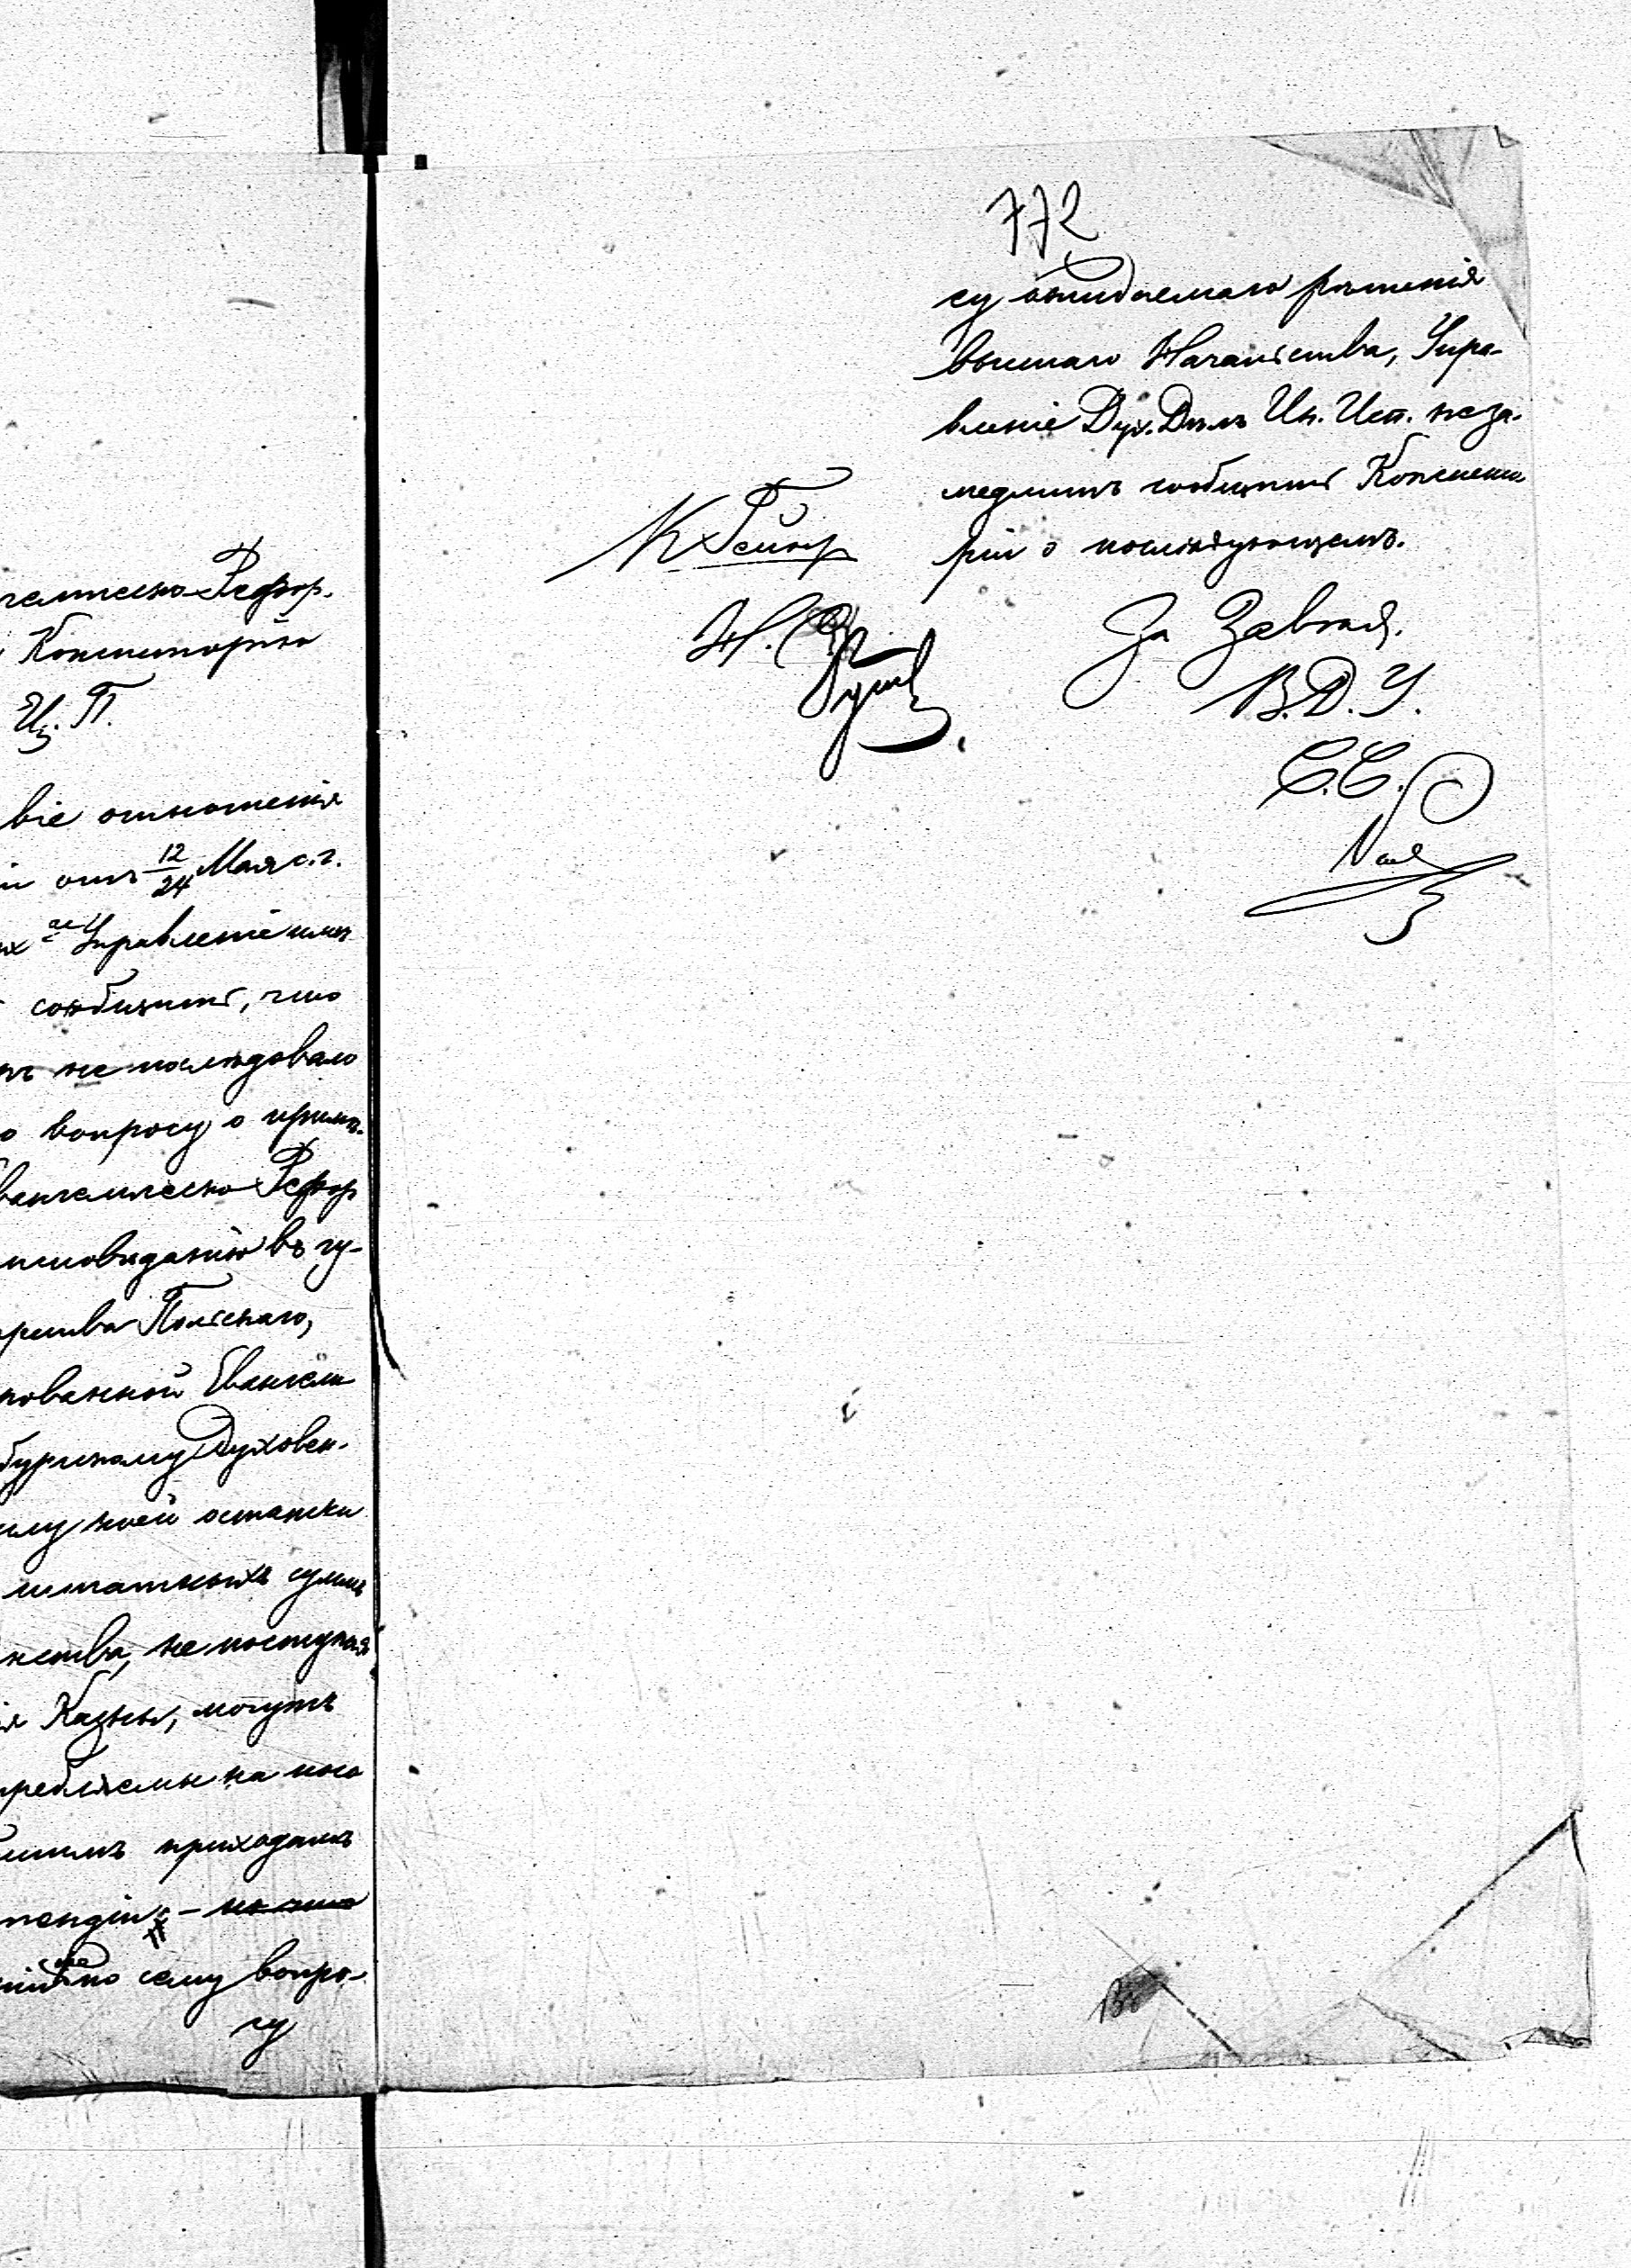 гелическо-Рефор.
Консисторію
Ц. П.
віе отношенія
отъ 12/24 Мая с. г.
Управленіе
сообщить, что
не послѣдовало
вопросу о
вангелическо-Рефор
исповѣданію въ гу-
Польскаго,
рованной Евангели
бургскому Духовен.
остатки
штатныхъ суммъ
нства, не поступая
Казны, могутъ
требляемы на
приходамъ
по сему вопро-
су
772
су ожидаемаго рѣшенія
высшаго Начальства, Упра-
вленіе Дух. Дѣлъ Ин. Исп. не за-
медлитъ сообщить Консисто
ріи о послѣдующемъ.
За Завѣд.
В. Д. У.
С. С.